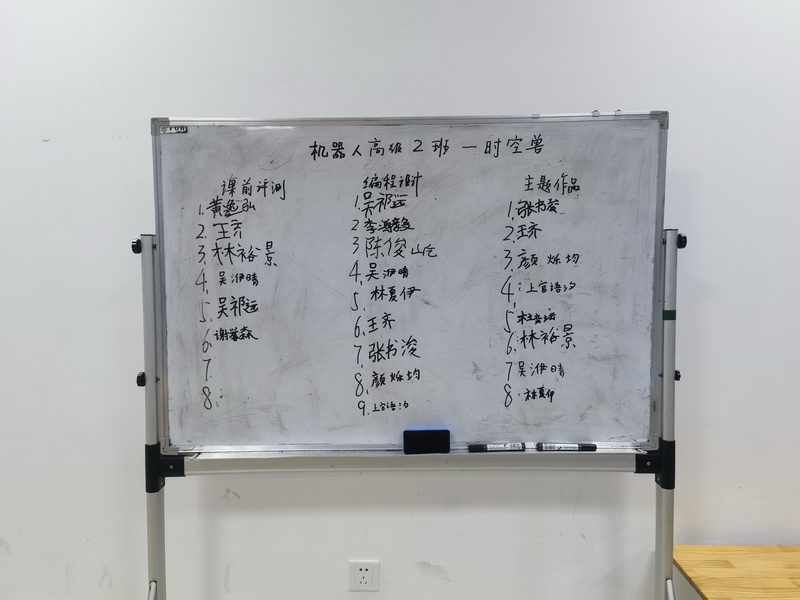 机器人高级2班一时空兽
课前评测
1.黄逸弘
2.王齐
3.林裕景
4.吴洢晴
5.吴祁远
6.谢 森
7.
8.
编程设计
1.吴祁远
2李
3陈俊屹
4.吴洢晴
5.林夏伊
6.王齐
7.张书浚
8.颜烁均
9.上官语汐
主题作品
1.张书浚
2.王齐
3.颜烁均
4.上官语汐
5.
6.林裕景
7吴洢晴
8.林夏伊